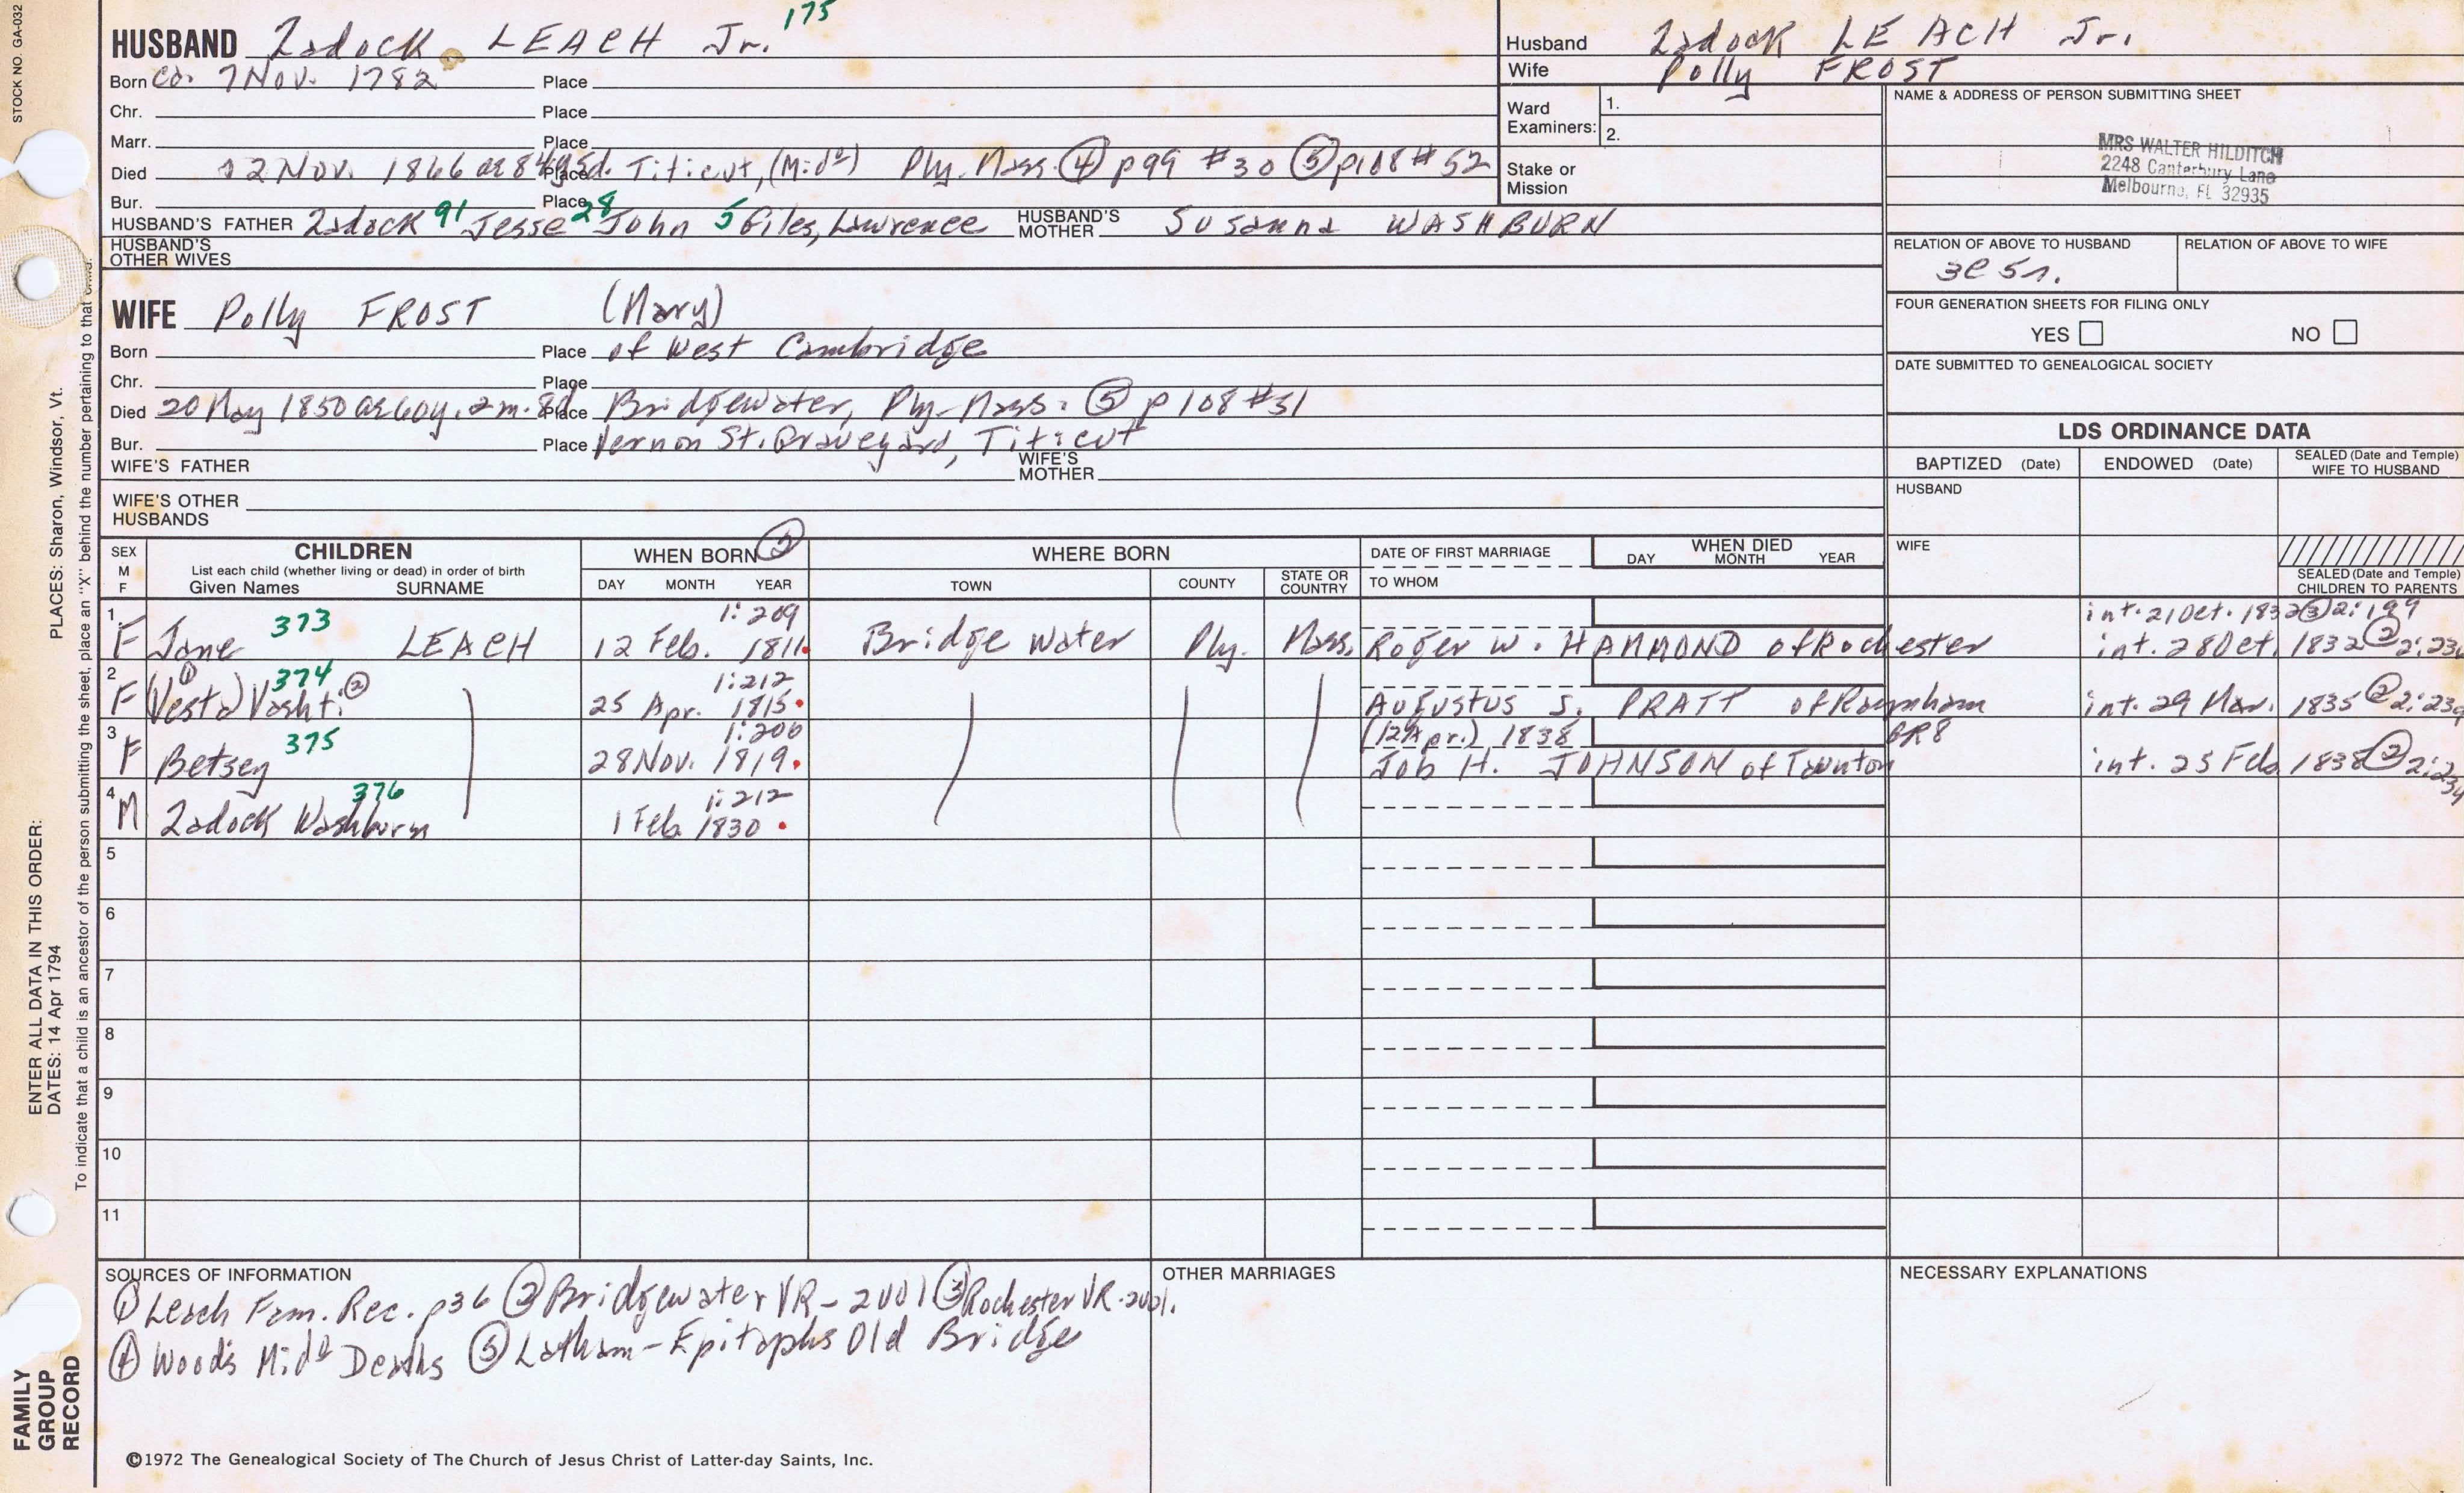 STOCK NO. GA-032
175
HUSBAND Zadock LEACH Jr.
Born ca. 7 Nov. 1782 Place
Chr. Place
Marr. Place
Died 12 Nov. 1866 ae 84y 5d. Place Titicut, (Midᵒ) Ply. Mass. ④ p99 #30 ⑤ p108 #52
Bur. Place
HUSBAND'S FATHER Zadock 91 Jesse 28 John 5 Giles, Lawrence HUSBAND'S MOTHER Susanna WASHBURN
HUSBAND'S OTHER WIVES
Husband Zadock LEACH Jr.
Wife Polly FROST
Ward Examiners: 1.
2.
Stake or Mission
NAME & ADDRESS OF PERSON SUBMITTING SHEET
MRS WALTER HILDITCH
2248 Canterbury Lane
Melbourne, FL 32935
RELATION OF ABOVE TO HUSBAND RELATION OF ABOVE TO WIFE
3c 5r.
FOUR GENERATION SHEETS FOR FILING ONLY
YES NO
DATE SUBMITTED TO GENEALOGICAL SOCIETY
WIFE Polly FROST (Mary)
Born Place of West Cambridge
Chr. Place
Died 20 May 1850 ae 60y. 2m. 8d Place Bridgewater, Ply-Mass. ⑤ p108 #51
Bur. Place Vernon St. Graveyard, Titicut
WIFE'S FATHER WIFE'S MOTHER
WIFE'S OTHER HUSBANDS
LDS ORDINANCE DATA
BAPTIZED (Date) ENDOWED (Date) SEALED (Date and Temple) WIFE TO HUSBAND
HUSBAND
WIFE
SEALED (Date and Temple) CHILDREN TO PARENTS
SEX M F CHILDREN WHEN BORN ② WHERE BORN DATE OF FIRST MARRIAGE WHEN DIED
List each child (whether living or dead) in order of birth DAY MONTH YEAR
Given Names SURNAME DAY MONTH YEAR TOWN COUNTY STATE OR COUNTRY TO WHOM
1. 373 1:209 int. 21 Oct. 1832 ③ 2:199
F Jane LEACH 12 Feb. 1811 Bridgewater Ply. Mass. Roger W. HAMMOND of Rochester int. 28 Oct. 1832 ② 2:23
2 ① 374 1:212
F (Vesta) Vashti ② 25 Apr. 1815 Augustus S. PRATT of Raynham int. 29 Mar. 1835 ② 2:23
3 375 1:206 (12 Apr.) 1838 GR8
F Betsey 28 Nov. 1819 Job H. JOHNSON of Taunton int. 25 Feb 1838 ② 2:234
4 376 1:212
M Zadock Washburn 1 Feb 1830
5
6
7
8
9
10
11
SOURCES OF INFORMATION
① Leach Fam. Rec. p36 ② Bridgewater VR - 2vol ③ Rochester VR - 2vol.
④ Wood's Midᵒ Deaths ⑤ Latham - Epitaphs Old Bridge
OTHER MARRIAGES
NECESSARY EXPLANATIONS
©1972 The Genealogical Society of The Church of Jesus Christ of Latter-day Saints, Inc.
FAMILY
GROUP
RECORD
ENTER ALL DATA IN THIS ORDER:
DATES: 14 Apr 1794
PLACES: Sharon, Windsor, Vt.
To indicate that a child is an ancestor of the person submitting the sheet, place an "X" behind the number pertaining to that child.